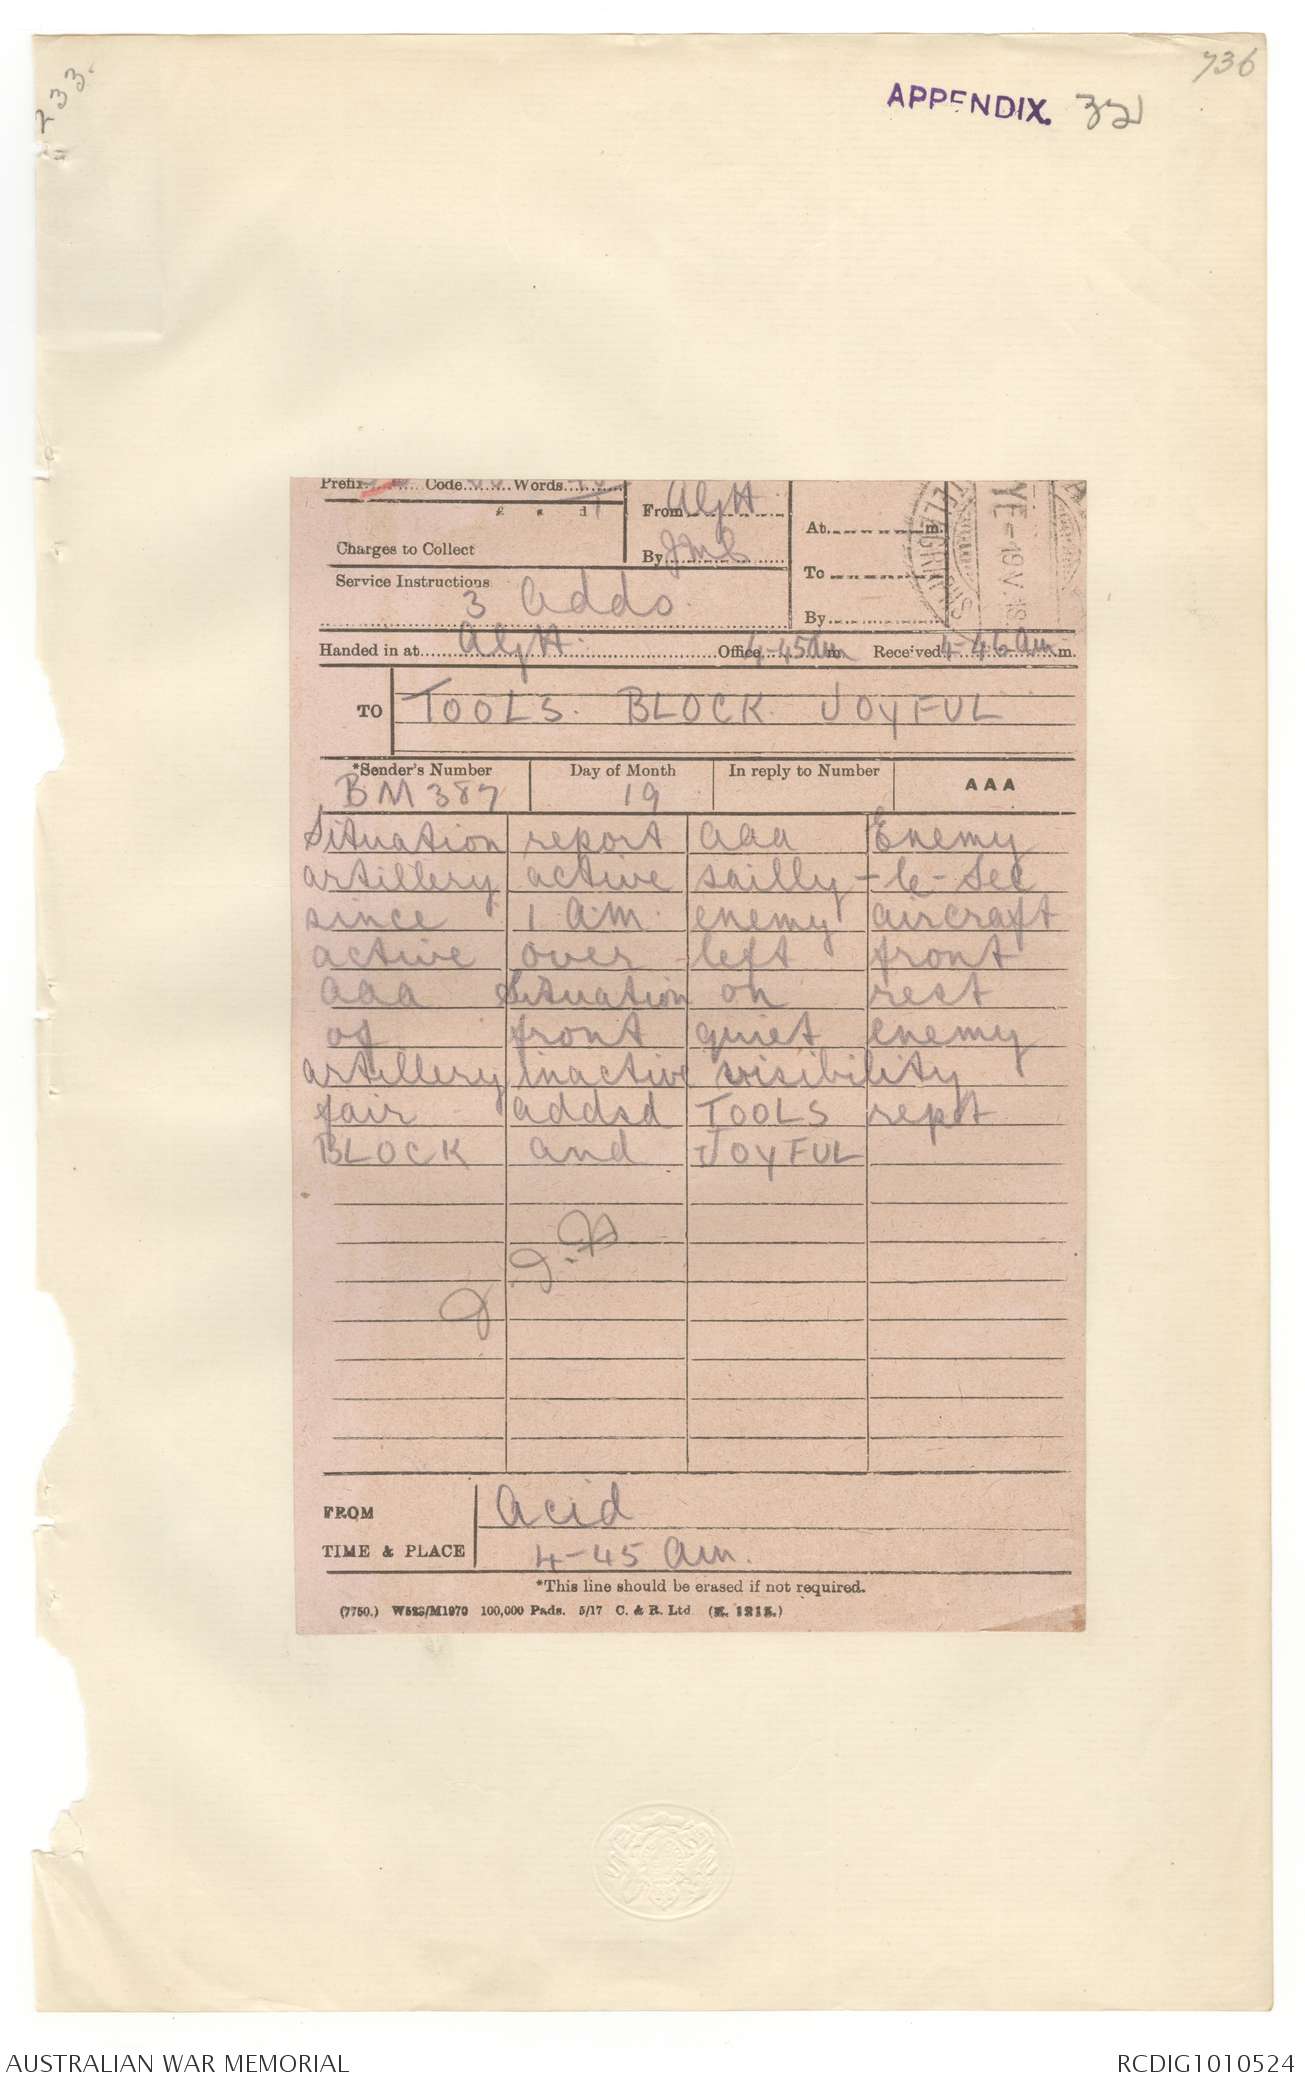 736
233
APPENDIX.
Prefix Code Words
£ s d
Charges to Collect
From AljH
By
At m.
To
By
Service Instructions
3 addo
Handed in at AljH Office 4-45am m. Received 4-46 am m.
TO TOOLS. BLOCK. JOYFUL
*Sender's Number Day of Month In reply to Number AAA
BM 387 19
Situation report aaa Enemy
artillery active sailly-le-sec
since 1 A.M. enemy aircraft
active over left front
aaa Situation on rest
of front quiet enemy
artillery inactive visibility
fair addsd TOOLS rept
BLOCK and JOYFUL
FROM Acid
TIME & PLACE 4-45 am.
*This line should be erased if not required.
(7750.) W523/M1970 100,000 Pads. 5/17 C. & R. Ltd
AUSTRALIAN WAR MEMORIAL
RCDIG1010524